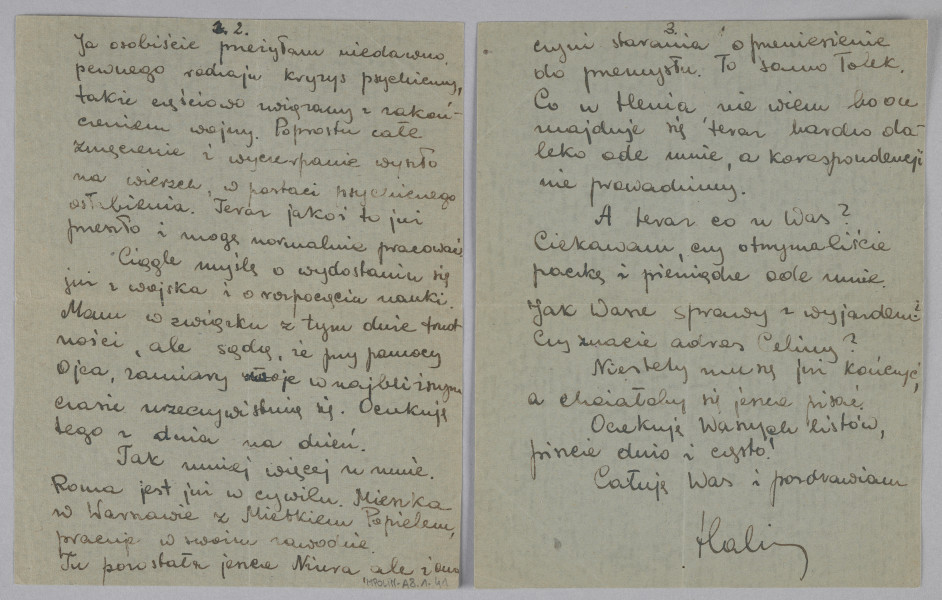 2.
Ja osobiście przeżyłam niedawno
pewnego rodzaju kryzys psychiczny,
także częściowo związany z zakoń-
czeniem wojny. Poprostu całe
zmęczenie i wyczerpanie wyszło
na wierzch, w postaci psychicznego
osłabienia. Teraz jakoś to już
przeszło i mogę normalnie pracować.
Ciągle myślę o wydostaniu się
już z wojska i o rozpoczęciu nauki.
Mam w związku z tym duże trud-
ności, ale sądzę, że przy pomocy
Ojca, zamiary moje w najbliższym
czasie urzeczywistnię się. Oczekuję
tego z dnia na dzień.
Tak mniej więcej u mnie.
Roma jest już w cywilu. Mieszka
w Warszawie z Mietkiem Popielem,
pracuje w swoim zawodzie.
Tu pozostała jeszcze Niura ale i ona
MPOLIN-A8.1.41
3.
czyni starania o przeniesienie
do przemysłu. To samo Tolek.
Co u Henia nie wiem bo on
znajduje się teraz bardzo da-
leko ode mnie, a korespondencji
nie prowadzimy.
A teraz co u Was?
Ciekawam, czy otrzymaliście
paczkę i pieniądze ode mnie.
Jak Wasze sprawy z wyjazdem?
Czy znacie adres Celiny?
Niestety muszę już kończyć,
a chciałoby się jeszcze pisać.
Oczekuję Waszych listów,
piszcie dużo i często!
Całuję Was i pozdrawiam
Halina